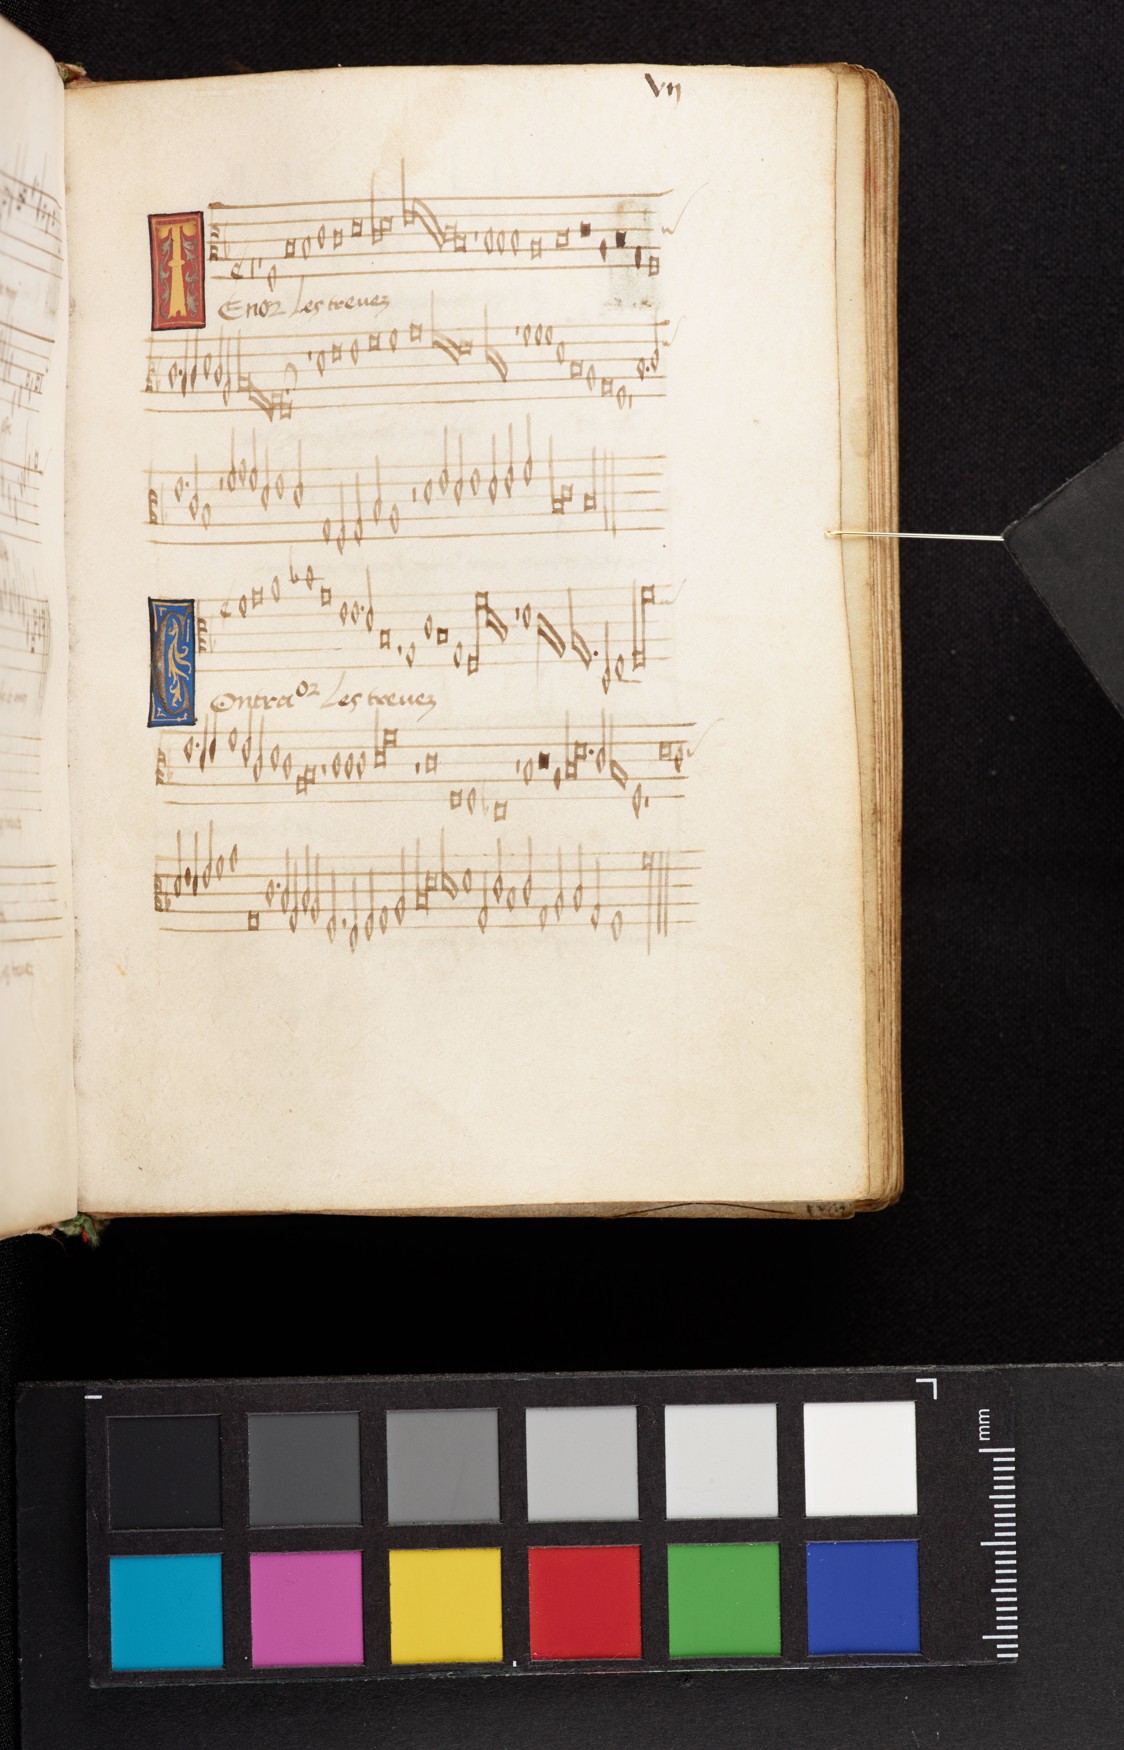 VII
TEnor Les treues
COntra or Les treues
mm